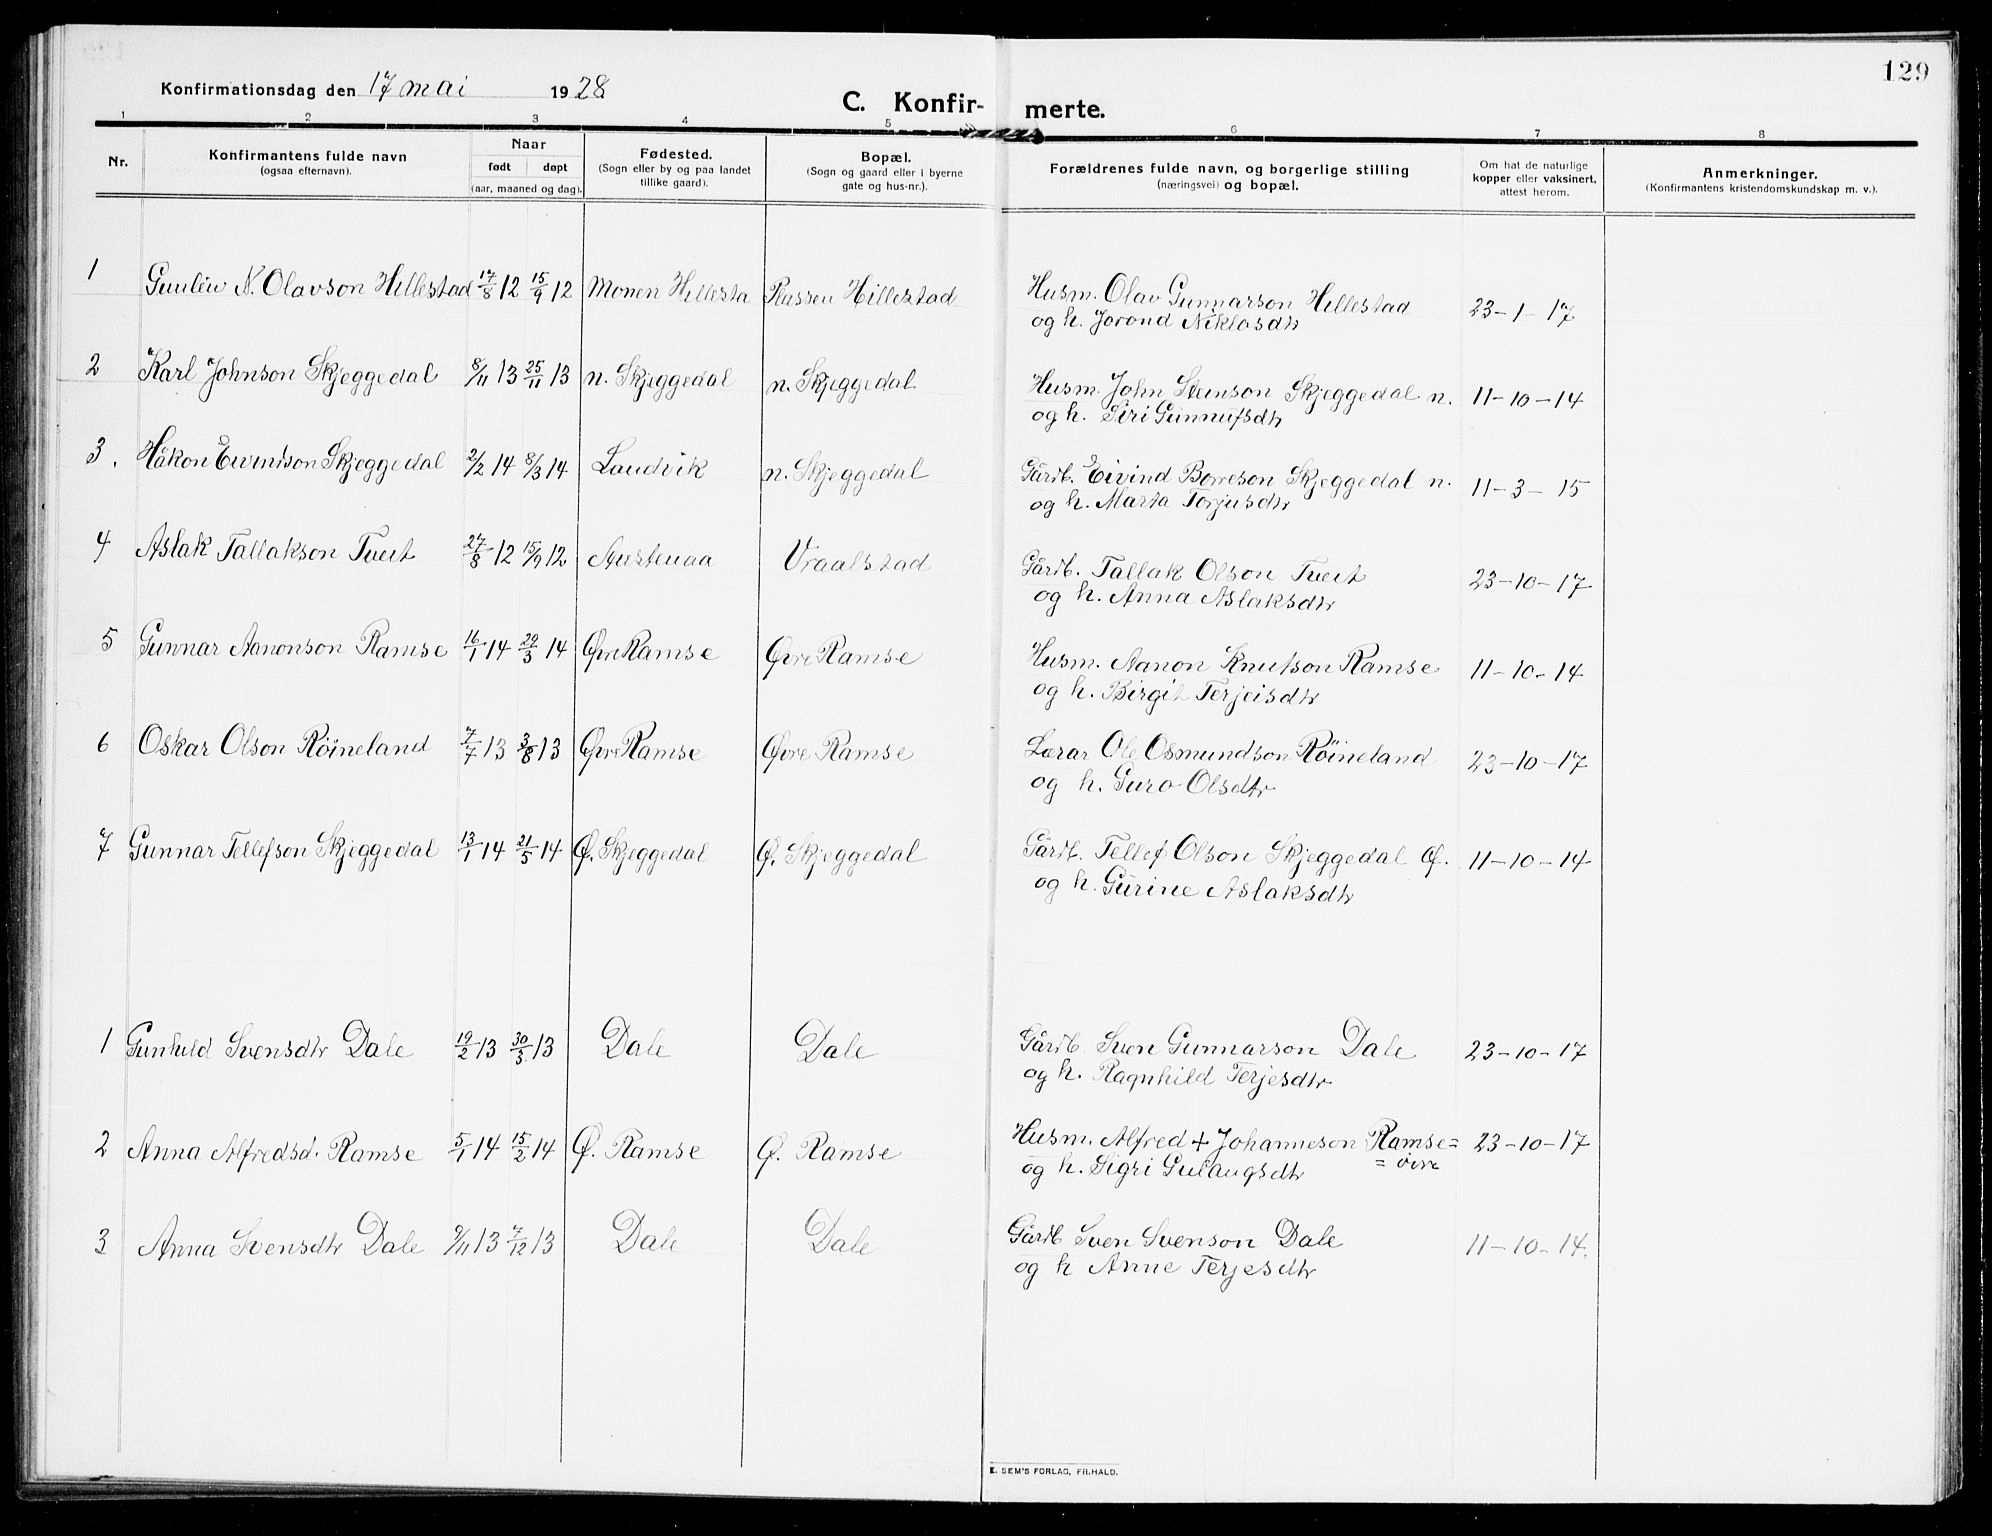 129
Konfirmationsdag den 17 mai 1928
C. Konfir- merte.
1 2 3 4 5 6 7 8
Nr.
Konfirmantens fulde navn
(ogsaa efternavn).
Naar
født døpt
(aar, maaned og dag).
Fødested.
(Sogn eller by og paa landet
tillike gaard).
Bopæl.
(Sogn og gaard eller i byerne
gate og hus-nr.).
Forældrenes fulde navn, og borgerlige stilling
(næringsvei) og bopæl.
Om hat de naturlige
kopper eller vaksinert,
attest herom.
Anmerkninger.
(Konfirmantens kristendomskundskap m. v.).
1 Gunleiv N. Olavson Hillestad 17/8 12 15/9 12 Monen Hillesta Plassen Hillestad Husm. Olav Gunnarson Hillestad 23-1-17
og h. Jorond Niklosdtr
2 Karl Johnson Skjeggedal 8/11 13 25/11 13 n. Skjeggedal n. Skjeggedal Husm. John Steinson Skjeggedal n. 11-10-14
og h. Siri Gunnufsdtr
3. Håkon Eivindson Skjeggedal 2/2 14 8/3 14 Landvik n. Skjeggedal Gårdb. Eivind Borreson Skjeggedal n. 11-3-15
og h. Marta Torjusdtr
4 Aslak Tallakson Tveit 27/8 12 15/9 12 Austenaa Vraalstad Gårdb. Tallak Olson Tveit 23-10-17
og h. Anna Aslaksdtr
5 Gunnar Aanonson Ramse 16/1 14 29/3 14 Øvre Ramse Øvre Ramse Husm. Aanon Knutson Ramse 11-10-14
og h. Birgit Terjeisdtr
6 Oskar Olson Röineland 7/7 13 3/8 13 Øvre Ramse Øvre Ramse Lærar Ole Osmundson Röineland 23-10-17
og h. Guro Olsdtr
7 Gunnar Tellefson Skjeggedal 13/1 14 21/5 14 Ø. Skjeggedal Ø. Skjeggedal Gårdb. Tellef Olson Skjeggedal Ø. 11-10-14
og h. Gurine Aslaksdtr
1 Gunhild Svensdtr Dale 19/2 13 30/3 13 Dale Dale Gårdb Sven Gunnarson Dale 23-10-17
og h. Ragnhild Terjesdtr
2 Anna Alfredsd. Ramse 5/1 14 15/2 14 Ø. Ramse Ø. Ramse Husm. Alfred + Johanneson Ramse= 23-10-17
og h. Sigri Gulaugsdtr = övre
3 Anna Svensdtr Dale 9/11 13 7/12 13 Dale Dale Gårdb Sven Svenson Dale 11-10-14.
og h Anne Terjesdtr
E. SEM'S FORLAG, FR.HALD.